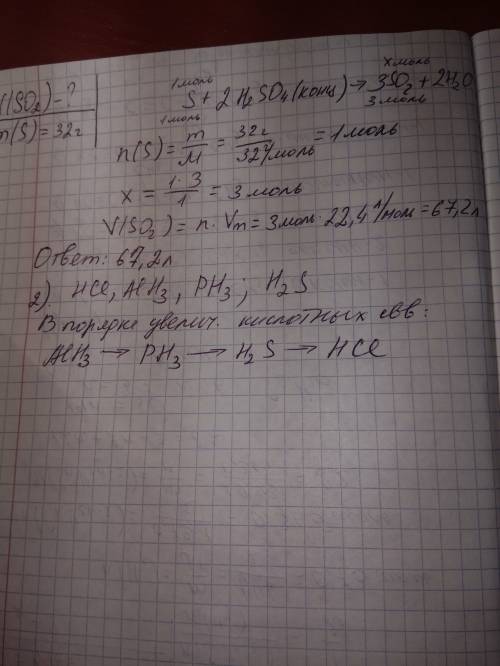 V(SO₂) - ?
m(S) = 32г
1моль x моль
S + 2H₂SO₄(конц) → 3SO₂ + 2H₂O
1моль 3 моль
n(S) = m/M = 32г/32г/моль = 1 моль
x = 1·3/1 = 3 моль
V(SO₂) = n · Vm = 3моль · 22,4 л/моль = 67,2л
Ответ: 67,2л
2). HCl, AlH₃, PH₃; H₂S
В порядке увелич. кислотных свв:
AlH₃ → PH₃ → H₂S → HCl